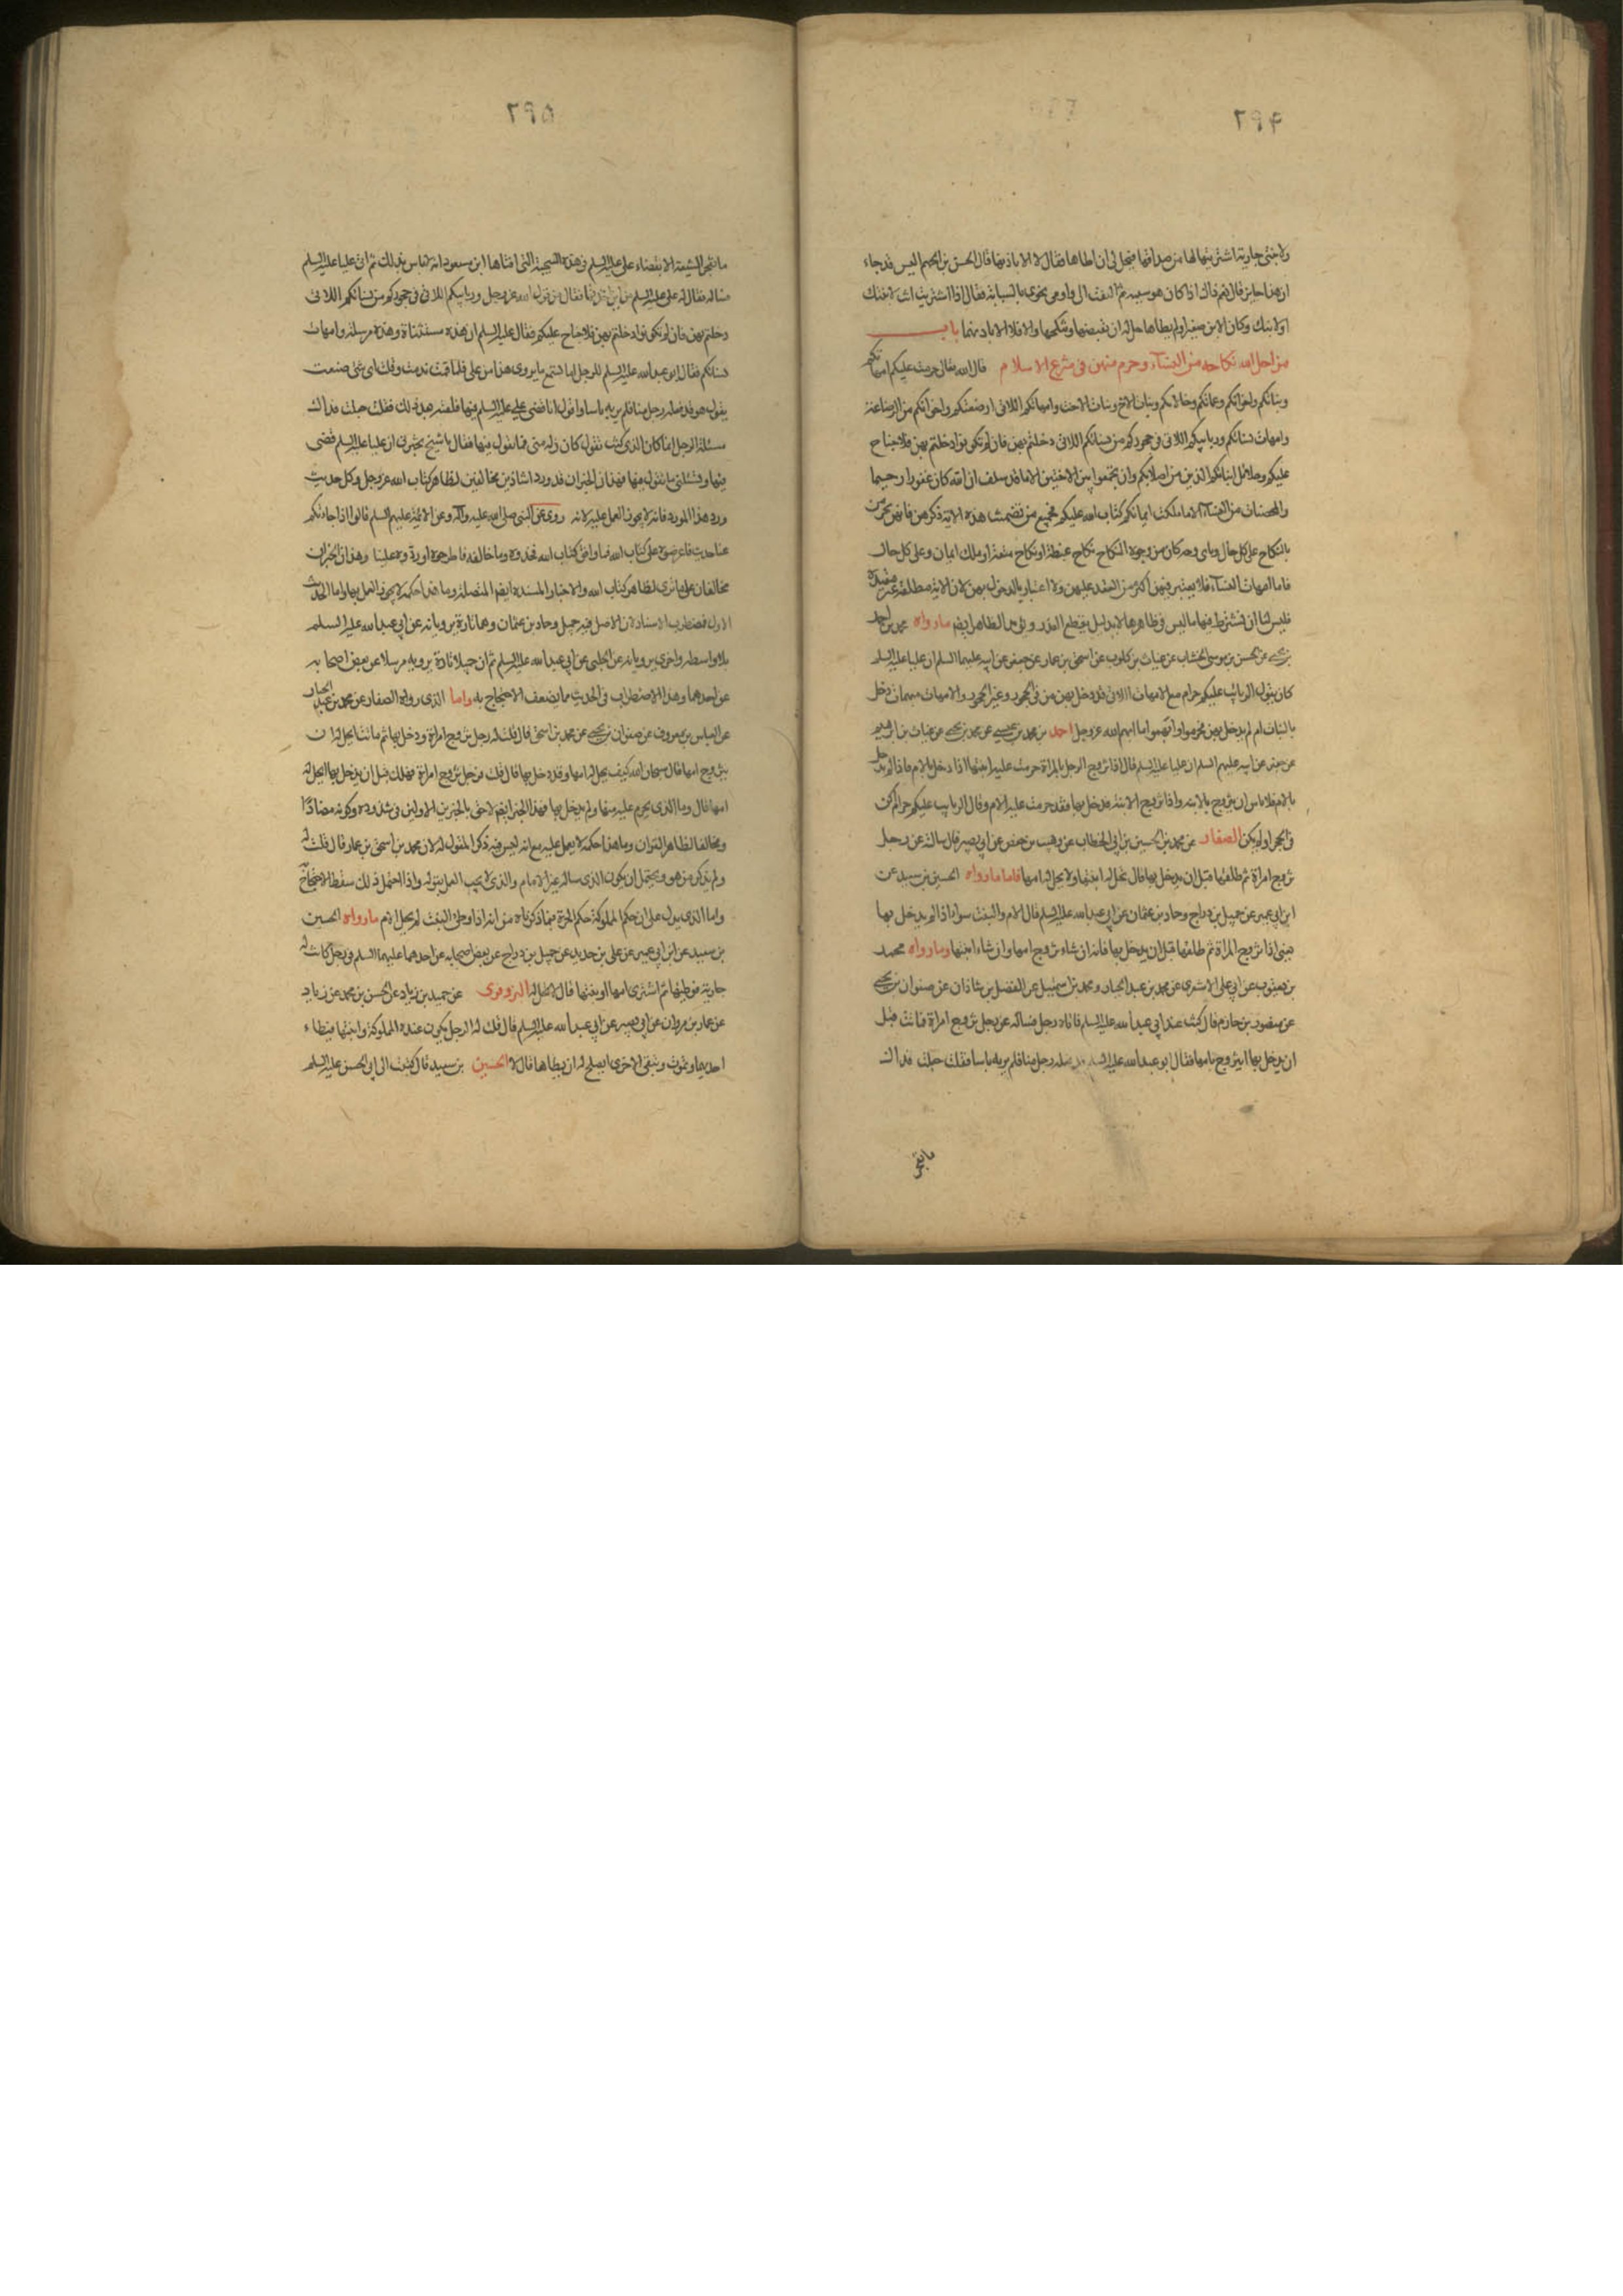 ۲۹۴
ولابنتى جارية اشتريتها لها من صداقها فيحل لى ان اطاها فقال لا الا باذنها قال الحسن بن الجهم اليس قد جاء
ان هذا جايز قال نعم ذاك اذا كان هو سببه ثم التفت الى واومى نحوى بالسبابة فقال اذا اشتريت انت لابنتك
اولابنك وكان الابن صغيرا ولم يطاها حل لك ان تقبضها وتنكحها والا فلا الا باذنهما باب
من احل الله نكاحه من النساء وحرم منهن فى شرع الاسلام قال الله تعالى حرمت عليكم امهاتكم
وبناتكم واخواتكم وعماتكم وخالاتكم وبنات الاخ وبنات الاخت وامهاتكم اللاتى ارضعنكم واخواتكم من الرضاعة
وامهات نسائكم وربائبكم اللاتى فى حجوركم من نسائكم اللاتى دخلتم بهن فان لم تكونوا دخلتم بهن فلا جناح
عليكم وحلائل ابنائكم الذين من اصلابكم وان تجمعوا بين الاختين الا ما قد سلف ان الله كان غفورا رحيما
والمحصنات من النساء الا ما ملكت ايمانكم كتاب الله عليكم فجميع من تضمنت هذه الاية ذكرهن فانهن يحرمن
بالنكاح على كل حال وباى وجه كان من وجوه النكاح نكاح غبطة او نكاح متعة او ملك ايمان وعلى كل حال
فاما امهات النساء فلا يعتبر فيهن اكثر من العقد عليهن ولا اعتبار بالدخول بهن لان الاية مطلقة غير مقيدة
فليس لنا ان نشترط فيها ما ليس فى ظاهرها الا بدليل يقطع العذر ويؤيد الظاهر ايضا ما رواه محمد بن احمد
بن يحيى عن الحسن بن موسى الخشاب عن غياث بن كلوب عن اسحق بن عمار عن جعفر عن ابيه عليهما السلم ان عليا عليه السلم
كان يقول الربائب عليكم حرام مع الامهات اللاتى قد دخل بهن من فى الحجور وغير الحجور والامهات مبهمات دخل
بالبنات ام لم يدخل بهن فحرموا وابهموا ما ابهم الله عز وجل احمد بن محمد بن عيسى عن محمد بن يحيى عن غياث بن ابرهيم
عن جعفر عن ابيه عليهم السلم ان عليا عليه السلم قال اذا تزوج الرجل بالمراة حرمت عليه ابنتها اذا دخل بالام فاذا لم يدخل
بالام فلا باس ان يتزوج بالابنة واذا تزوج الابنة فدخل بها فقد حرمت عليه الام وقال الربايب عليكم حرام كن
فى الحجر او لم يكن الصفار عن محمد بن الحسين بن ابى الخطاب عن وهيب بن حفص عن ابى بصير قال سالته عن رجل
تزوج امراة ثم طلقها قبل ان يدخل بها فقال تحل له ابنتها ولا يحل له امها فاما ما رواه الحسين بن سعيد عن
ابن ابى عمير عن جميل بن دراج وحماد بن عثمان عن ابى عبد الله عليه السلم قال الام والبنت سواء اذا لم يدخل بها
يعنى اذا تزوج المراة ثم طلقها قبل ان يدخل بها فانه ان شاء تزوج امها وان شاء ابنتها وما رواه محمد
بن يعقوب عن ابى على الاشعرى عن محمد بن عبد الجبار ومحمد بن اسمعيل عن الفضل بن شاذان عن صفوان بن يحيى
عن منصور بن حازم قال كنت عند ابى عبد الله عليه السلم فاتاه رجل فساله عن رجل تزوج امراة فماتت قبل
ان يدخل بها ايتزوج بامها فقال ابو عبد الله عليه السلم قد فعله رجل منا فلم ير به باسا فقلت جعلت فداك
ما تفخر
۲۹۵
ما تفخر الشيعة الا بقضاء على عليه السلم فى هذه السمجية التى افتاها ابن مسعود انه لا باس بذلك ثم اتى عليا عليه السلم
فساله فقال له على عليه السلم من اين اخذتها فقال من قول الله عز وجل وربايبكم اللاتى فى حجوركم من نسائكم اللاتى
دخلتم بهن فان لم تكونوا دخلتم بهن فلا جناح عليكم فقال عليه السلم ان هذه مستثناة وهذه مرسلة وامهات
نسائكم فقال ابو عبد الله عليه السلم للرجل اما تسمع ما يروى هذا عن على فلما قمت ندمت وقلت اى شئ صنعت
يقول هو قد فعله رجل منا فلم ير به باسا واقول انا قضى على عليه السلم فيها فلقيته بعد ذلك فقلت جعلت فداك
مسئلة الرجل انما كان الذى كنت تقول كان زلة منى فما تقول فيها فقال يا شيخ تخبرنى ان عليا عليه السلم قضى
فيها وتسئلنى ما تقول فيها فهذان الخبران قد وردا شاذين مخالفين لظاهر كتاب الله عز وجل وكل حديث
ورد هذا المورد فانه لا يجوز العمل عليه لانه روى عن النبى صلى الله عليه وآله وعن الائمة عليهم السلم قالوا اذا جاءكم
عنا حديث فاعرضوه على كتاب الله فما وافق كتاب الله فخذوه وما خالفه فاطرحوه او ردوه علينا وهذان الخبران
مخالفان على ما ترى لظاهر كتاب الله والاخبار المسندة ايضا المتصلة وما هذا حكمه لا يجوز العمل بها واما الحديث
الاول فمضطرب الاسناد لان الاصل فيه جميل وحماد بن عثمان وهما تارة يرويانه عن ابى عبد الله عليه السلم
بلا واسطة واخرى يرويانه عن الحلبى عن ابى عبد الله عليه السلم ثم ان جميلا تارة يرويه مرسلا عن بعض اصحابه
عن احدهما وهذا الاضطراب فى الحديث مما يضعف الاحتجاج به واما الذى رواه الصفار عن محمد بن عبد الجبار
عن العباس بن معروف عن صفوان بن يحيى عن محمد بن اسحق قال قلت له رجل تزوج امراة ودخل بها ثم ماتت ايحل له ان
يتزوج امها قال سبحان الله كيف يحل له امها وقد دخل بها قال قلت فرجل تزوج امراة فهلكت قبل ان يدخل بها ايحل له
امها قال وما الذى يحرم عليه منها ولم يدخل بها فهذا الخبر ايضا لاحق بالخبرين الاولين فى شذوذه وكونه مضادا
ومخالفا لظاهر القران وما هذا حكمه لا يعمل عليه مع انه ليس فيه ذكر المقول له لان محمد بن اسحق بن عمار قال قلت له
ولم يذكر من هو ويحتمل ان يكون الذى ساله غير الامام والذى لا يجب العمل بقوله واذا احتمل ذلك سقط الاحتجاج به
واما الذى يدل على ان حكم المملوكة حكم الحرة فيما ذكرناه من انه اذا وطئ البنت لم يحل الام ما رواه الحسين
بن سعيد عن ابن ابى عمير عن على بن حديد عن جميل بن دراج عن بعض اصحابه عن احدهما عليهما السلم فى رجل كانت له
جارية فوطيها ثم اشترى امها او بنتها قال لا تحل له البزوفرى عن حميد بن زياد عن الحسن بن محمد عن زياد
عن عمار بن مروان عن ابى بصير عن ابى عبد الله عليه السلم قال قلت له الرجل يكون عنده المملوكة وابنتها فيطاء
احديهما وتموت وتبقى الاخرى ايصلح له ان يطاها قال لا الحسين بن سعيد قال كتبت الى ابى الحسن عليه السلم